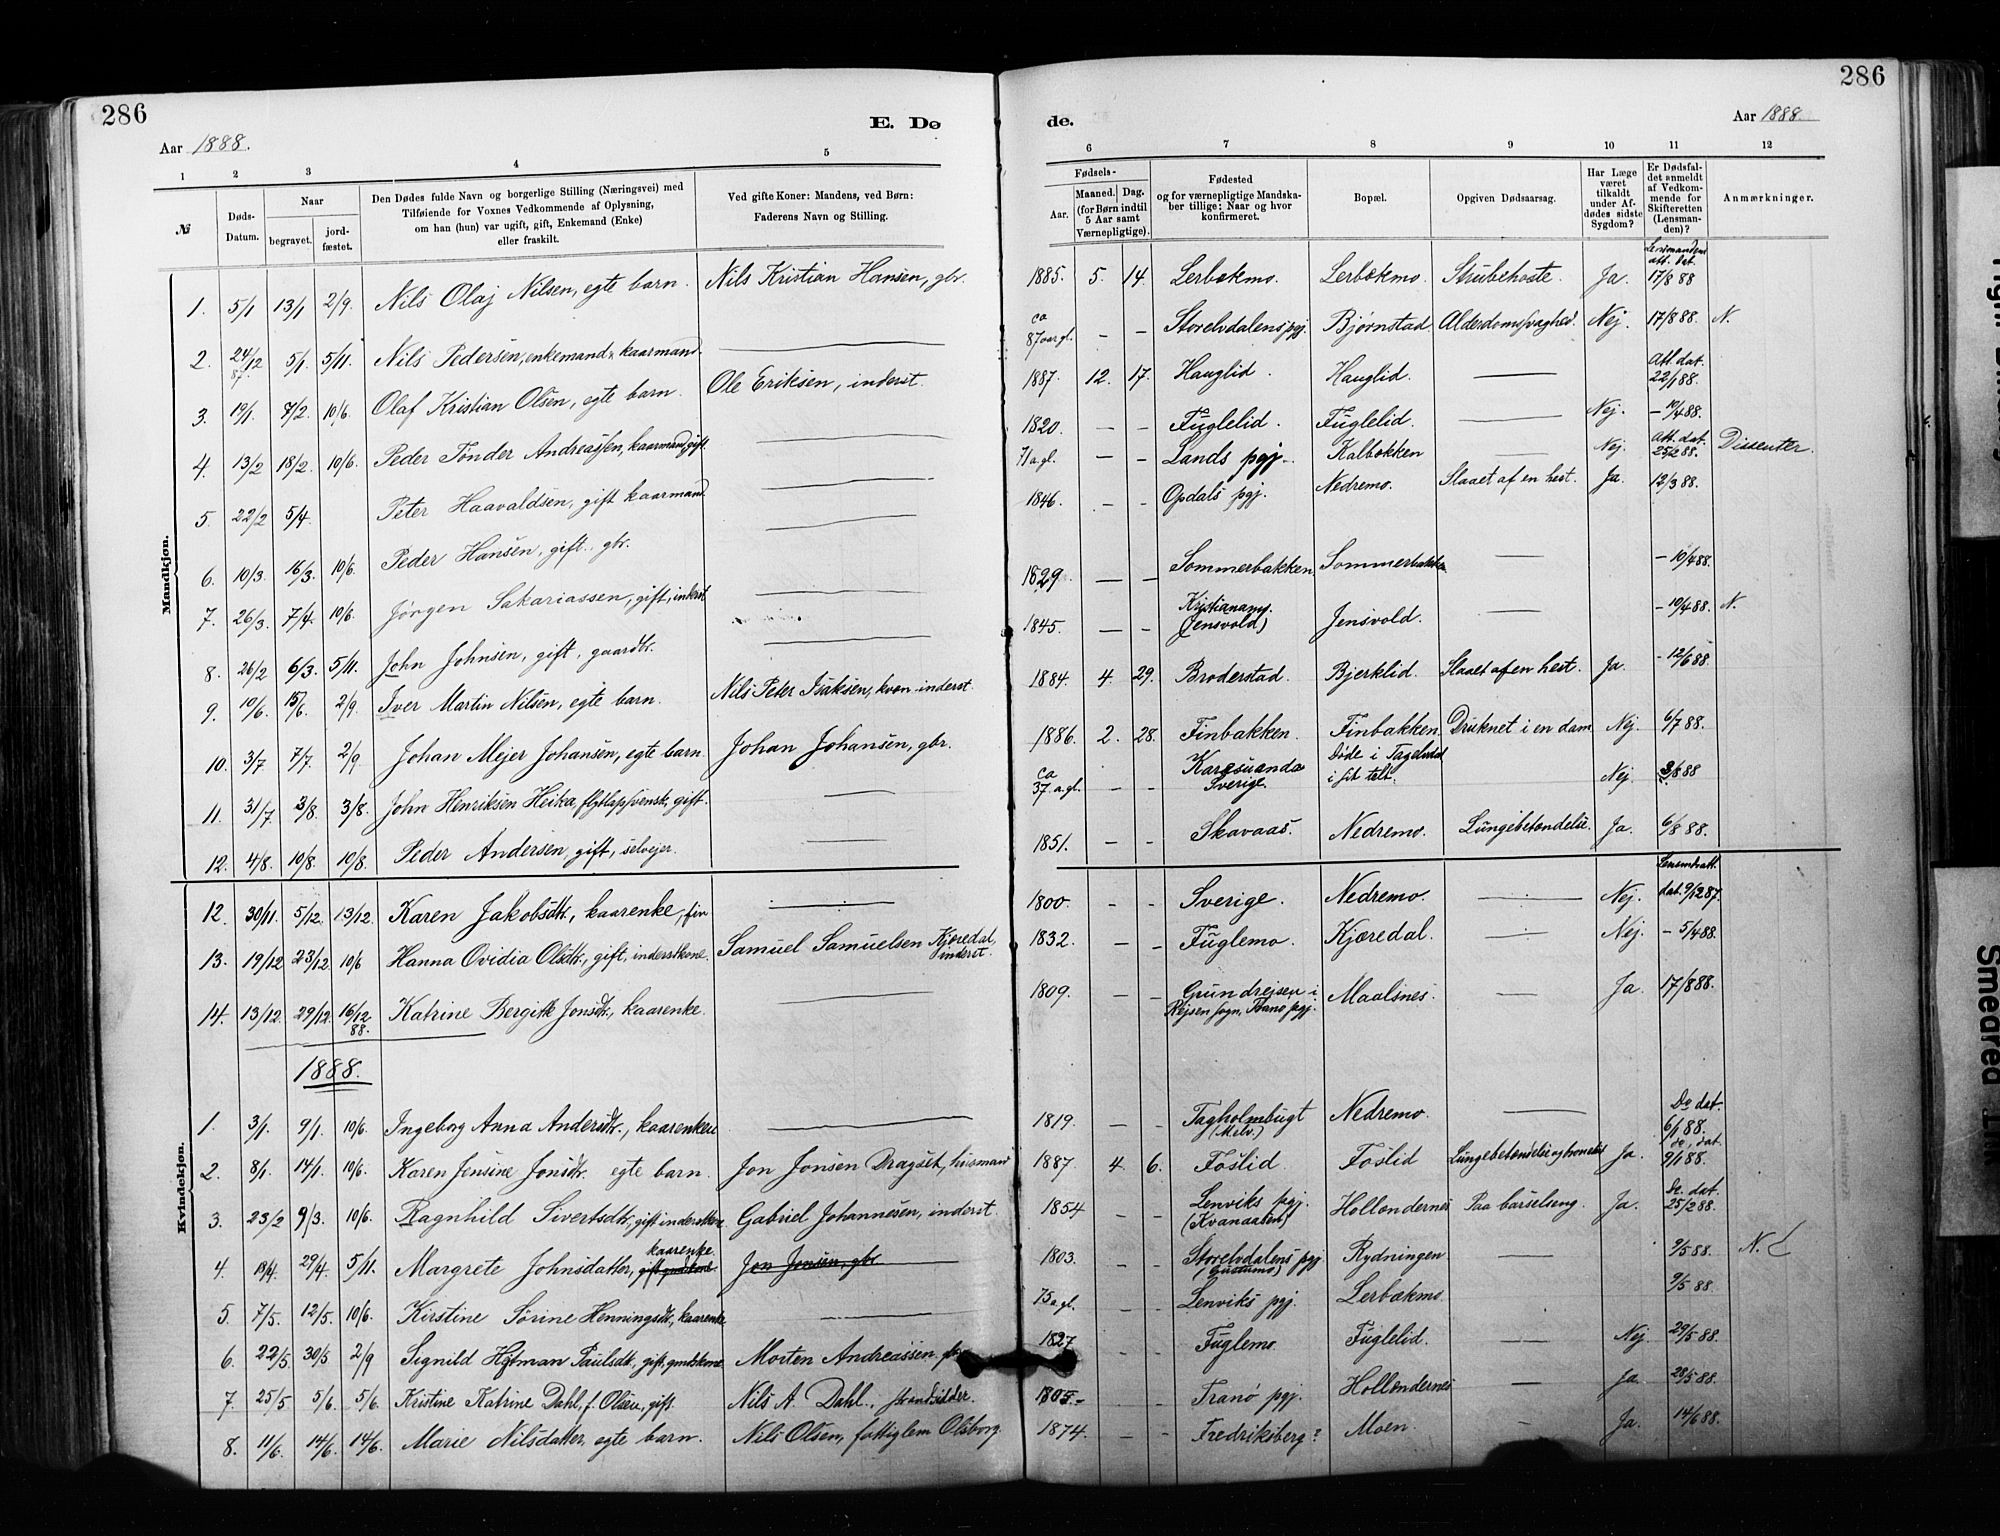 286
286
E. Dø
de.
Aar 1888.
Aar 1888.
1 2 3 4 5 6 7 8 9 10 11 12
№
Døds-Datum.
Naar
begravet.
jord-fæstet.
Den Dødes fulde Navn og borgerlige Stilling (Næringsvei) med
Tilføiende for Voxnes Vedkommende af Oplysning,
om han (hun) var ugift, gift, Enkemand (Enke)
eller fraskilt.
Ved gifte Koner: Mandens, ved Børn:
Faderens Navn og Stilling.
Fødsels-
Aar.
Maaned. Dag.
(for Børn indtil
5 Aar samt
Værnepligtige).
Fødested
og for værnepligtige Mandska-
ber tillige: Naar og hvor
konfirmeret.
Bopæl.
Opgiven Dødsaarsag.
Har Læge
været
tilkaldt
under Af-
dødes sidste
Sygdom?
Er Dødsfal-
det anmeldt
af Vedkom-
mende for
Skifteretten
(Lensman-
den)?
Anmærkninger.
Mandkjøn.
1. 5/1 13/1 2/9. Nils Olaj Nilsen, egte barn. Nils Kristian Hansen, gbr. 1885. 5. 14. Lerbækmo. Lerbækmo. Strubehoste. Ja. Lensmandens att. dat. 17/8 88
2. 24/12 87. 5/1. 5/11. Nils Pedersen, enkemand, kaarmand. ca 87 aar gl. – – Storelvdalens pgj. Bjørnstad. Alderdomssvaghed. Nej. 17/8 88. N.
3. 19/1. 7/2. 10/6. Olaf Kristian Olsen, egte barn. Ole Eriksen, inderst. 1887. 12. 17. Hauglid. Hauglid. — Att. dat. 22/1 88.
4. 13/2 18/2. 10/6. Peder Tønder Andreassen, kaarmand, gift. 1820. – – Fuglelid. Fuglelid. — Nej. – 10/4 88.
5. 22/2 5/4. Peter Haavaldsen, gift kaarmand. 71 a gl. – – Lands pgj. Kalbækken — Nej. Att. dat. 25/2 88. Dissenter.
6. 10/3. 16/3. 10/6. Peder Hansen, gift., gbr. 1846. – – Opdals pgj. Nedremo. Slaaet af en hest. Ja. 12/3 88.
7. 26/3. 7/4. 10/6. Jørgen Sakariassen, gift, inderst 1829. – – Sommerbakken. Sommerbakken — – 10/4 88.
8. 26/2 6/3. 5/11. John Johnsen, gift, gaardbr. 1845. – – Kristianamt. (Jensvold) Jensvold. — – 10/4 88. N.
9. 10/6. 15/6. 2/9. Iver Martin Nilsen, egte barn. Nils Peter Isaksen, kvæn. inderst. 1884. 4. 29. Broderstad. Bjerklid. Slaaet af en hest. Ja. – 12/6 88.
10. 3/7 7/7. 2/9. Johan Mejer Johansen, egte barn. Johan Johansen, gbr. 1886. 2. 28. Finbakken. Finbakken. Druknet i en dam Nej. 6/7 88.
11. 31/7 3/8. 3/8. John Henriksen Heika, flytlap, svensk, gift. ca 37 a. gl. – – Karesuando Sverige. Døde i Tagelvdal i sit telt. Nej. 3/8 88
12. 4/8. 10/8. 10/8. Peder Andersen, gift, selvejer. 1851. – – Skavaas. Nedremo. Lungebetændelse. Ja. 6/8 88.
Kvindekjøn.
12. 30/11. 5/12. 13/12. Karen Jakobsdtr., kaarenke, fin 1800. – – Sverige. Nedremo. — Nej. Lensmdsatt. dat. 9/12 87.
13. 19/12 23/12. 10/6 Hanna Ovidia Olsdtr., gift, inderstkone. Samuel Samuelsen Kjæredal, inderst. 1832. – – Fuglemo. Kjæredal. — Nej. – 5/4 88.
14. 13/12. 29/12. 16/12 88. Katrine Bergitte Jonsdtr., kaarenke. 1809. – – Grundrejsen i Rejsen sogn, Tranø pgj. Maalsnes. — Ja. 17/8 88.
1888.
1. 3/1. 9/1. 10/6. Ingeborg Anna Andersdtr., kaarenken 1819. – – Tagholmbugt (Mælv.) Nedremo. — Do dat. 6/1 88.
2. 8/1. 14/1. 10/6. Karen Jensine Jonsdtr. egte barn. Jon Jonsen Dragset, husmand 1887. 4. 6. Foslid. Foslid Lungebetændelse og Ja. do. dat. 9/1 88.
3. 23/2 9/3. 10/6. Ragnhild Sivertsdtr, gift inderstkone. Gabriel Johannesen, inderst. 1854 – – Lenviks pgj. (Kvanaasen) Hollendernes Paa barselseng. Ja. Do. dat. 25/2 88.
4. 19/4. 29/4. 5/11. Margrete Johnsdatter, kaarenke. gift gmdskone. Jon Jonsen, gbr. 1803. – – Storelvdalens pgj. Rydningen — 9/5 88. N.
5. 7/5. 12/5. 10/6. Kirstine Sørine Henningsdtr., kaarenke 75 a gl. – – Lenviks pgj. Lerbækmo. 9/5 88.
6. 22/5 30/5 2/9 Signild Hytman Paulsdtr., gift, gmdskone Morten Andreassen 1827 – – Fuglemo. Fuglelid. — Nej. 29/5 88.
7. 25/5 5/6. 5/6. Kristine Katrine Dahl, f. Olsen, gift. Nils A. Dahl., strandsidder. 1805. – – Tranø pgj. Hollendernes — Ja. 28/5 88.
8. 11/6. 14/6. 14/6. Marie Nilsdatter, egte barn. Nils Olsen, fattiglem Olsborg. 1874. – – Fredriksberg? Moen. – Ja. 14/6 88.
Smeared